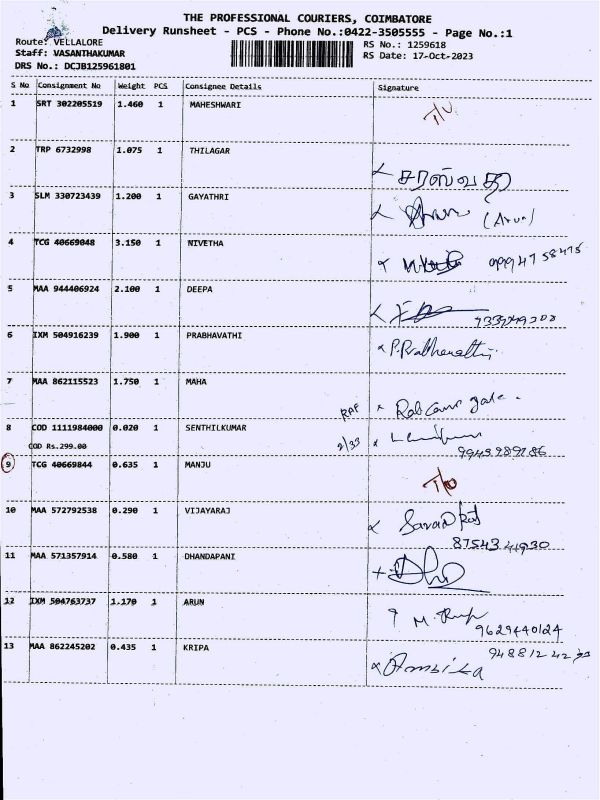 THE PROFESSIONAL COURIERS, COIMBATORE
Delivery Runsheet - PCS - Phone No.:0422-3505555 - Page No.:1
Route: VELLALORE
RS No.: 1259618
Staff: VASANTHAKUMAR
RS Date: 17-Oct-2023
DRS No.: DCJB125961801
S No Consignment No Weight PCS Consignee Details Signature
1 SRT 302205519 1.460 1 MAHESHWARI
2 TRP 6732998 1.075 1 THILAGAR
சரஸ்வதி
3 SLM 330723439 1.200 1 GAYATHRI
4 TCG 40669048 3.150 1 NIVETHA
5 MAA 944406924 2.100 1 DEEPA
6 IXM 504916239 1.900 1 PRABHAVATHI
P.Prabhavathi
7 MAA 862115523 1.750 1 MAHA
8 COD 1111984000 0.020 1 SENTHILKUMAR
COD Rs.299.00
9 TCG 40669844 0.635 1 MANJU
10 MAA 572792538 0.290 1 VIJAYARAJ
11 MAA 571357914 0.580 1 DHANDAPANI
12 IXM 504763737 1.170 1 ARUN
9629440124
13 MAA 862245202 0.435 1 KRIPA
Ambika